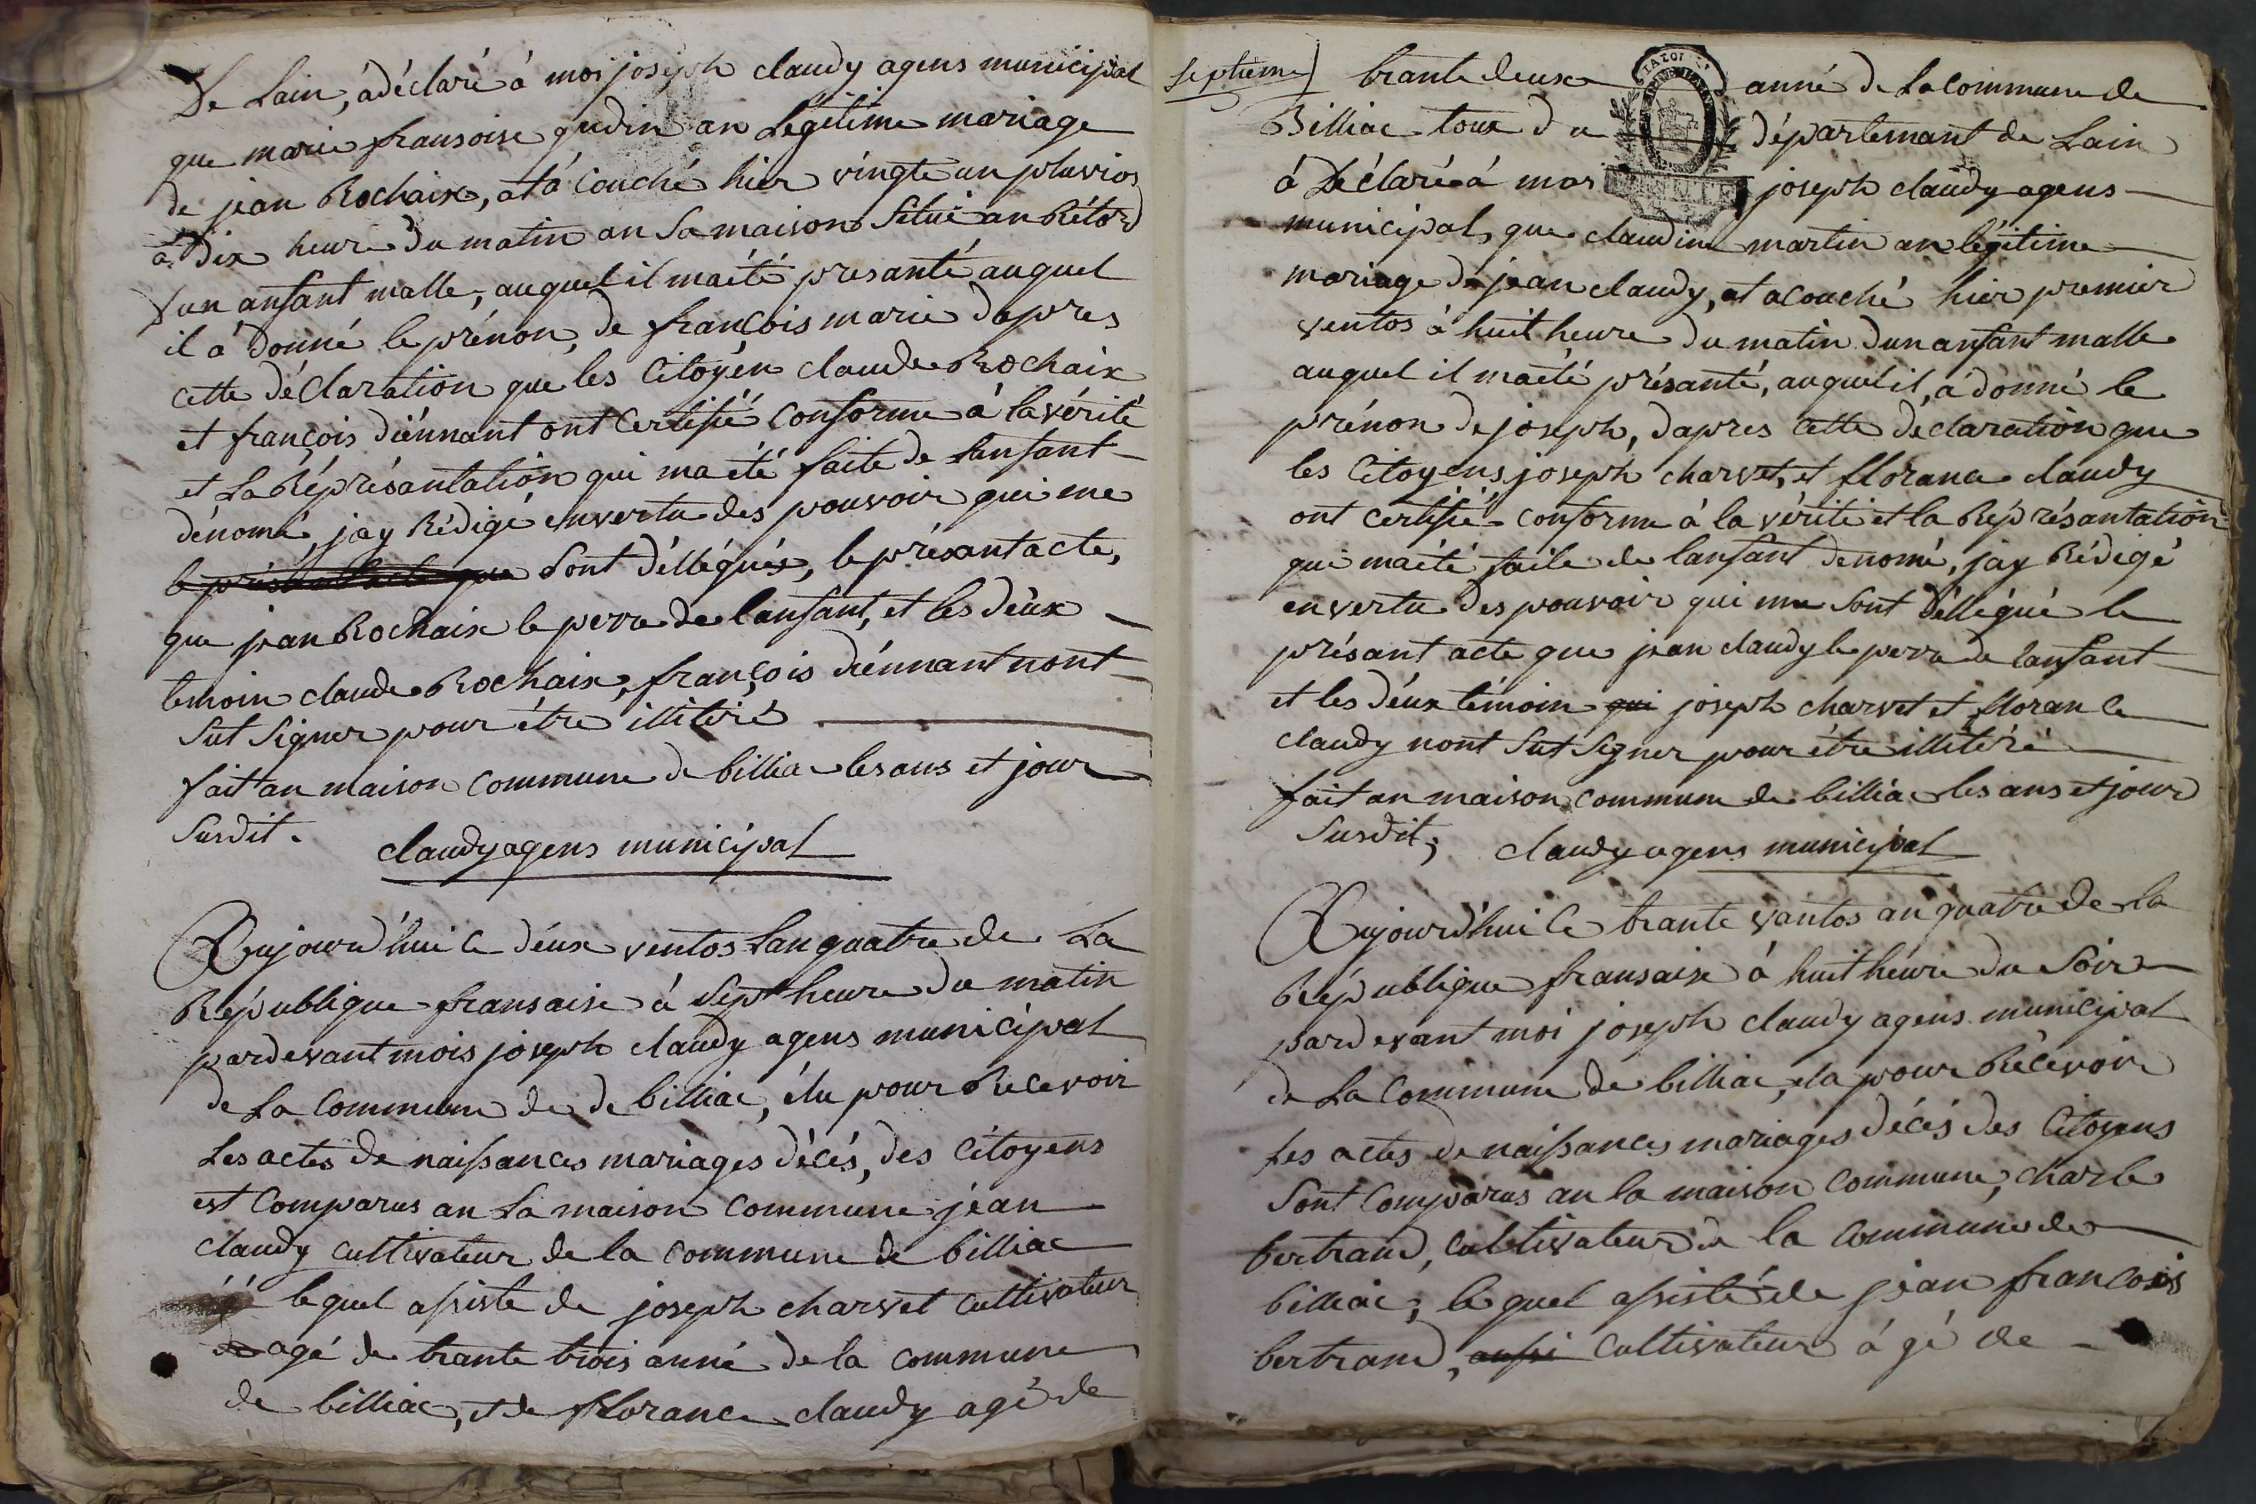 De Lain, à déclaré à moi joséph claudy agens municipal
que marie fransoise gudin an Légitime mariage
de jean Rochaix, at à couché hier vingte un pluvios
à dix heure du matin an Sa maison Situé an Rétord
dun anfant malle, auquel il maété presanté auquel
il à donné le prénon, de françois marie dapres
cette déclaration que les Citoyén claude Rochaix
et françois diénnant ont certifié conforme à la vérité
et La Réprésantation qui ma été faite de Lanfant
dénomé, jay Rédigé envertu des pouvoir qui me
sont déllégués, le présant acte,
que jean Rochaix le perre de lanfant, et les déux
temoin claude Rochaix, françois diénnant nont
Sut Signer pour être illitéré
fait an maison commune de billiac les ans et jour
Susdit.
claudy agens municipal
Aujourd'hui le déux ventos Lan quatre de La
République fransaise à Sept heure du matin
pardevant mois joseph claudy agens municipal
de La Commune de de billiac, élu pour Recevoir
Les actes de naissances mariages décés, des Citoyens
est Comparus an La maison Commune jean
Claudy cultivateur de la commune de billiac
le quel assiste de joseph charvet cultivateur
agé de trante trois anné de la commune
de billiac, et de florance claudy agé de
Septieme
trante deux anné de La commune de
Billiac tous du départemant de Lain
à déclaré à mois joseph claudy agens
municipal, que claudine martin an légitime
mariage de jean claudy, at acouché hier premier
ventos à huit heure du matin dun anfant malle
auquel il maété présanté, auquel il, à donné le
prénon de joseph, dapres cette declaration que
les Citoyens joseph charvet, et florance claudy
ont certifié conforme à la vérité et la Réprésantation
qui maété faite de lanfant dénomé, jay Rédigé
en vertu des pouvoir qui me sont déllégué le
présant acte que jean claudy le perre de lanfant
et les déux témoin qui joseph charvet et florance
claudy nont Sut Signer pour être illitéré
fait an maison commune de billiac les ans et jour
Susdit,
claudy agens municipal
Aujourd'hui le trante vantos an quatre de La
République fransaise à huit héure du Soir
pardevant moi joseph claudy agens municipal
de La commune de billiac, élu pour Récevoir
Les actes de naissances mariages décés des Citoyens
Sont Comparus an la maison commune, charle
bertrand, cultivateur de la commune de
billiac, le quel assisté de jean francois
bertrand, aussi cultivateur à gé de